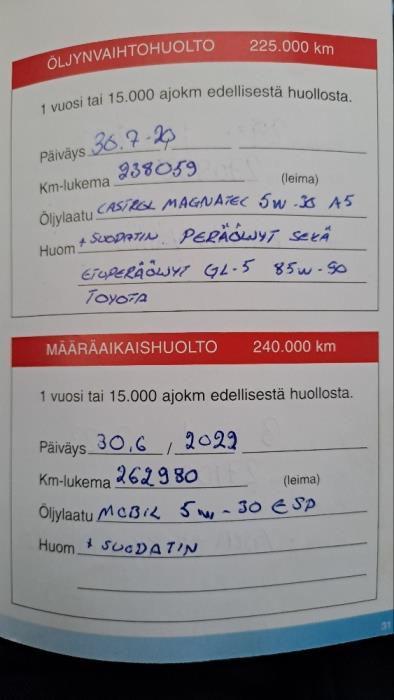 ÖLJYNVAIHTOHUOLTO 225.000 km
1 vuosi tai 15.000 ajokm edellisestä huollosta.
Päiväys 30.7-20
Km-lukema 238059 (leima)
Öljylaatu CASTROL MAGNATEC 5W-30 A5
Huom + SUODATIN PERÄÖLJYT SEKÄ
ETUPERÄÖLJYT GL-5 85W-90
TOYOTA
MÄÄRÄAIKAISHUOLTO 240.000 km
1 vuosi tai 15.000 ajokm edellisestä huollosta.
Päiväys 30.6 / 2022
Km-lukema 262980 (leima)
Öljylaatu MOBIL 5W-30 ESP
Huom + SUODATIN
31